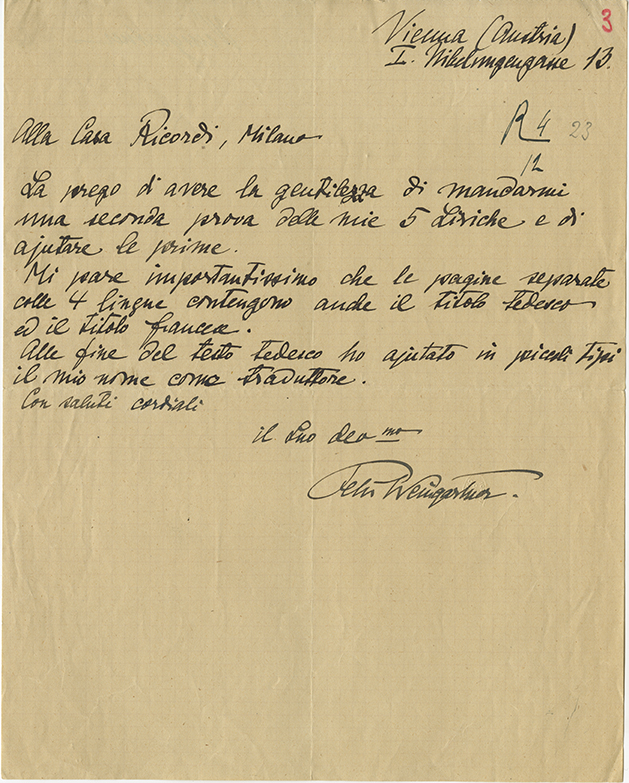 3
Vienna (Austria)
I. Nibelungengasse 13.
R 4/12 23
Alla Casa Ricordi, Milano
La prego di avere la gentilezza di mandarmi
una seconda prova delle mie 5 Liriche e di
ajutare le prime.
Mi pare importantissimo che le pagine separate
colle 4 lingue contengono anche il titolo tedesco
ed il titolo francese.
Alle fine del testo tedesco ho ajutato in piccoli tipi
il mio nome come traduttore.
Con saluti cordiali
il Suo devmo
Felix Weingartner.